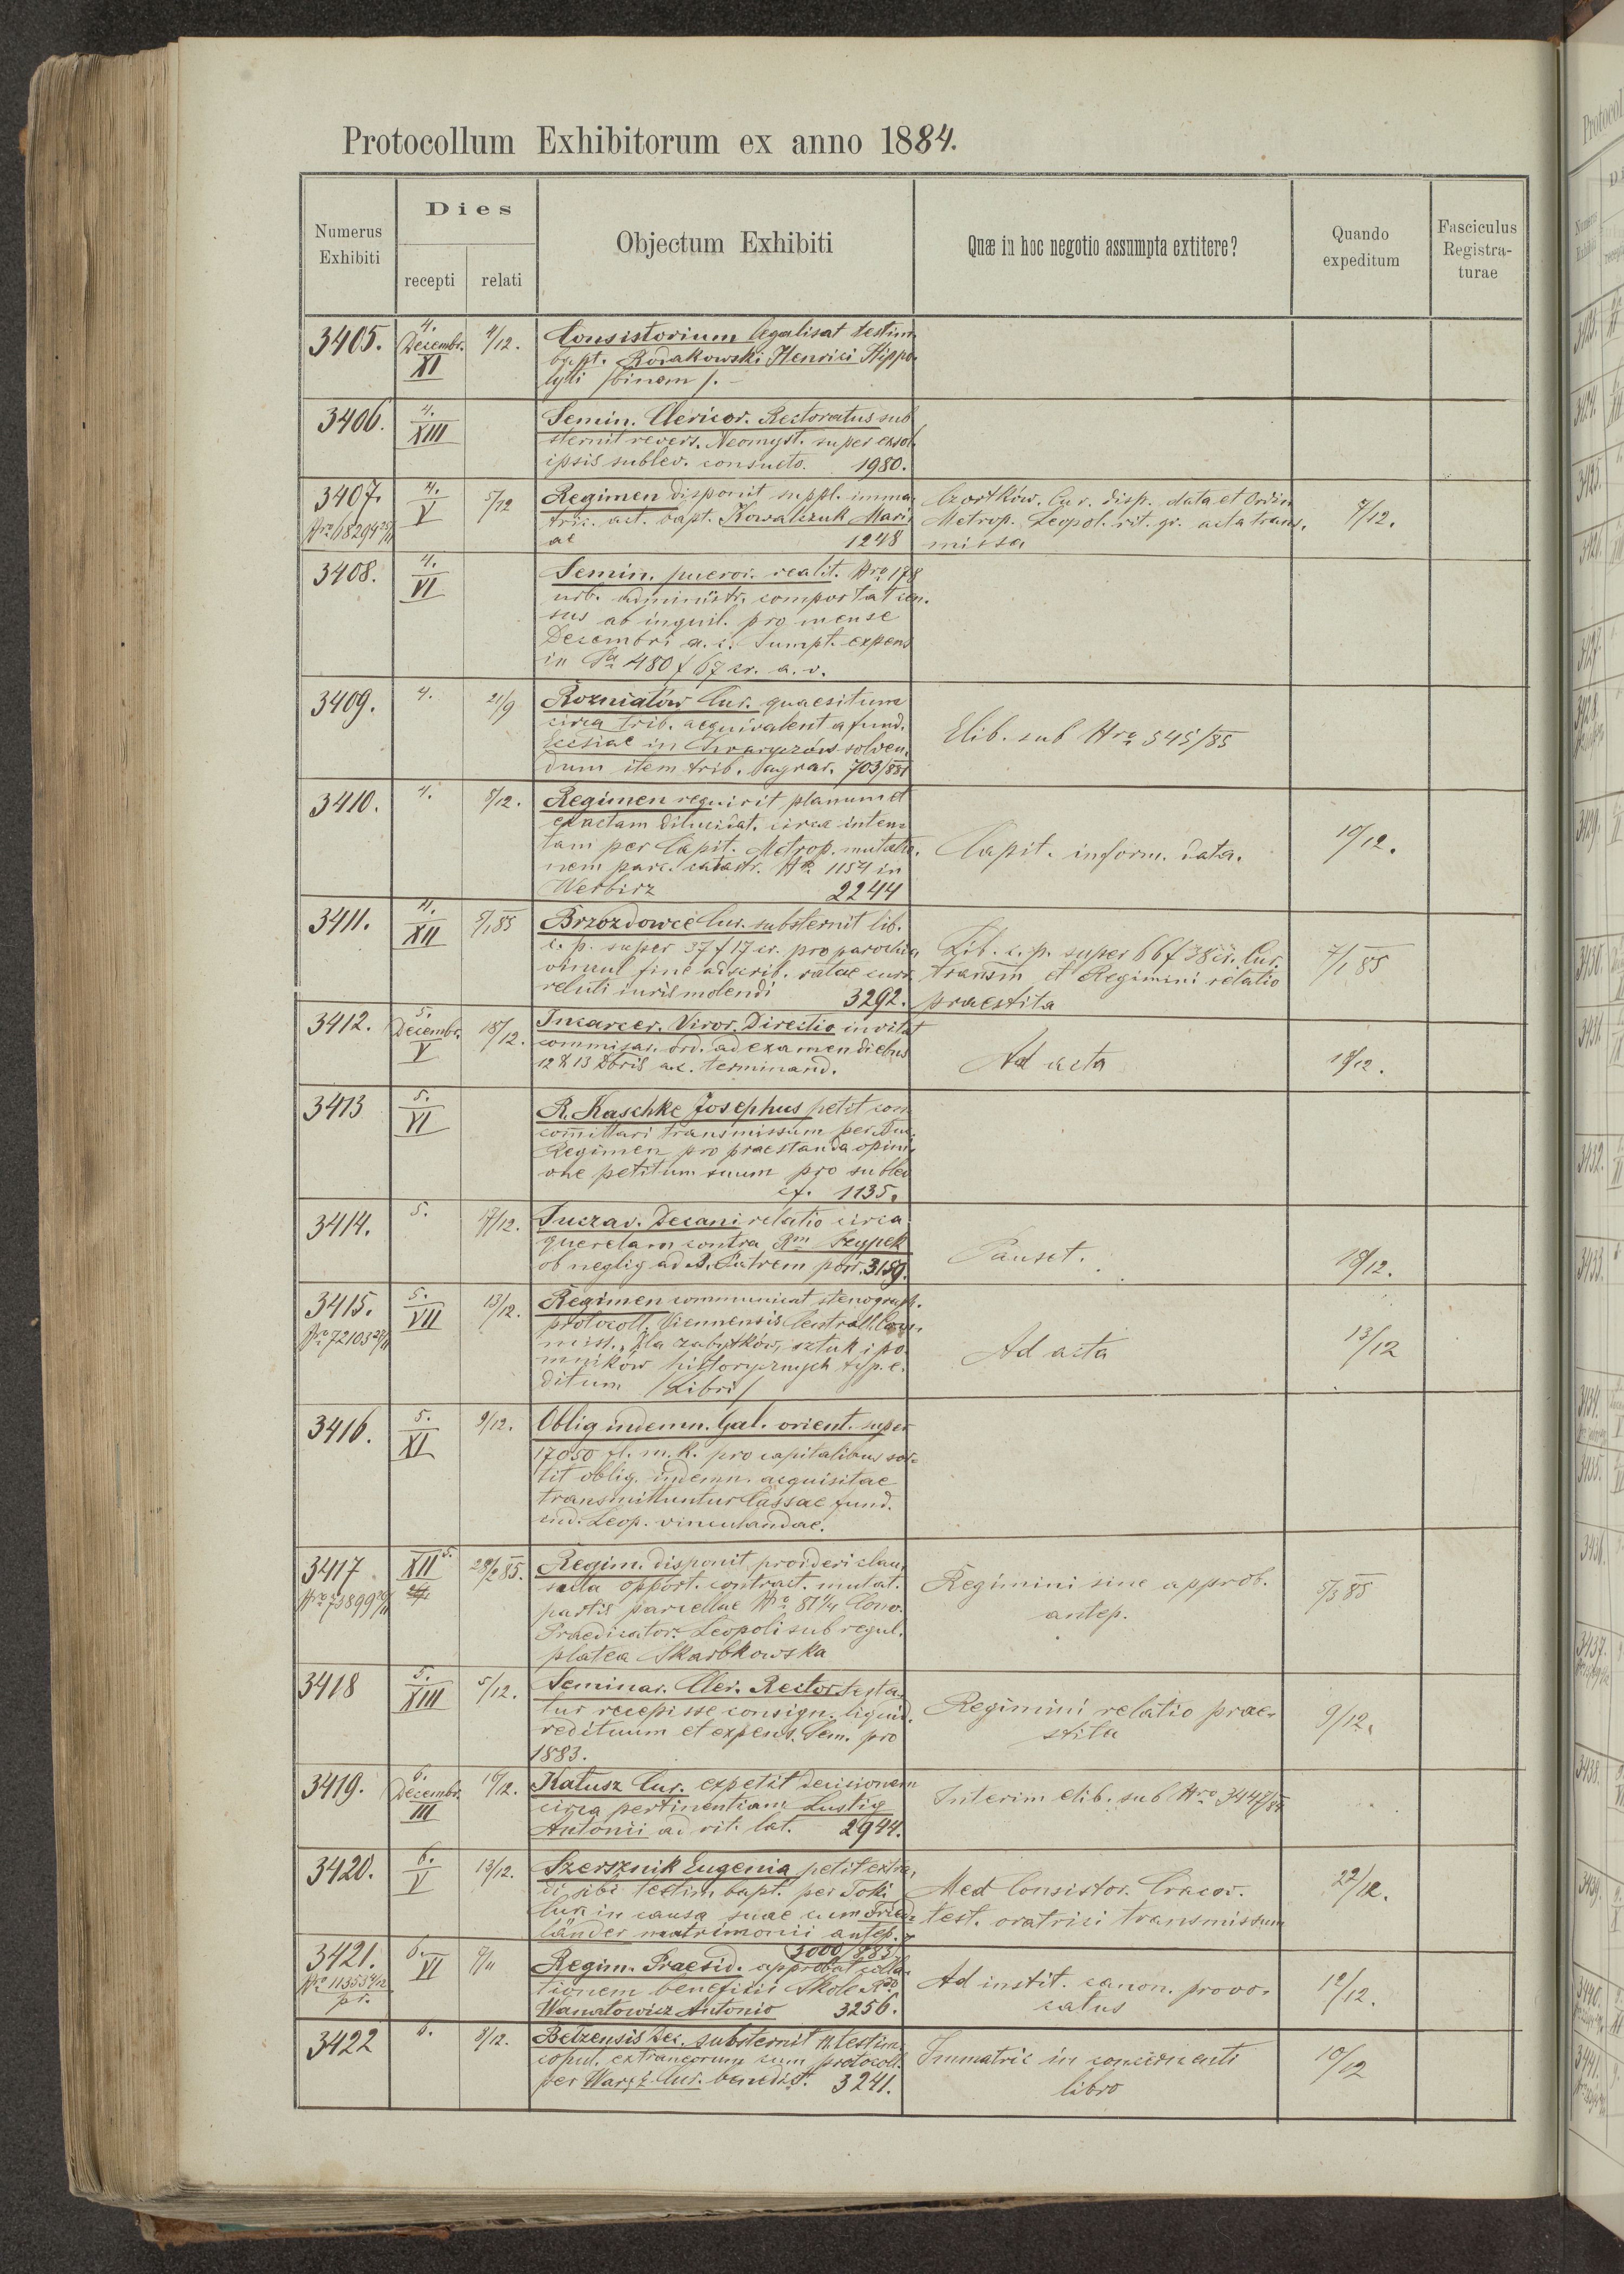 Protocollum Exhibitorum ex anno 1884.
Numerus Exhibiti
Dies
recepti
relati
Objectum Exhibiti
Quæ in hoc negotio assumpta extitere?
Quando expeditum
Fasciculus Registra-turae
3405.
4. Decembr. XI
4/12.
Consistorium legalisat testim
bapt. Rodakowski Henrici Hippo
lyti /binom/. –
3406.
4. XIII
Semin. Clericor. Rectoratus sub
sternit revers. Neomyst. super exsol.
ipsis sublev. consueto. 1980.
3407.
4. V
5/12
Regimen disponit suppl. imma
tric. act. bapt. Kowalczuk Mari
ae 1248
Czortków. Cur. disp. data et Ordin
Metrop. Leopol. rit. gr. acta trans.
missa
7/12.
3408.
4. VI
Semin. pueror. realit. Nro 178
urb. administr. comportat cen.
sus ab inquil. pro mense
Decembri a. c. Sumpt. expens
in Sa 480 f 67 cr. a. v.
3409.
4.
21/9
Rozniatów Cur. quaesitum
circa trib. aequivalent a fund.
Ecclsiae in solven.
dum item trib. agrar. 703/881
Elib. sub Nro 545/85
3410.
4.
8/12.
Regimen requirit planum et
exactam dilucidat. circa inten=
tam per Capit. Metrop. mutatio.
nem parc. catastr. Nro 1154 in
Werbirz 2244
Capit. inform. data.
10/12.
3411.
4. XII
5/1 85
Brzozdowce Cur. substernit lib.
c. p. super 37 f 17 cr. pro parochia
vincul fine adscrib. ratae curr.
reluti iuris molendi 3292.
Lib. c. p. super 66 f 38 cr. Cur.
transm et Regimini relatio
praestita
7/1 85
3412.
5. Decembr. V
18/12.
Incarcer. Viror. Directio invitat
commisar. ord. ad examen diebus
12 & 13 Xbris a.c. terminand.
Ad acta
18/12.
3413
5. VI
R. Kaschke Josephus petit com
comittari transmissum per
Regimen pro praestanda opini
one petitum suum pro sublev
cf. 1135.
3414.
5.
17/12.
Tuczav. Decani relatio circa
querelam contra Rm Szypek
ob neglig ad S. Patrem porr. 3159.
Pauset.
18/12.
3415.
Nro 72103 29/11
5. VII
13/12.
Regimen communicat stenograph.
protocoll. Viennensis Centrall. Com.
miss. „Dla zabytków, sztuk i po
mników historycznych typ. e.
ditum /Libri/
Ad acta
13/12
3416.
5. XI
9/12.
Oblig indemn. Gal. orient. super
17050 fl. m. k. pro capitalibus sor=
tit oblig. indemn. acquisitae
transmittuntur Cassae fund.
ind. Leop. vinculandae.
3417
Nro 73899 29/11
XII 5.
28/2 85.
Regim. disponit provideri clau
sula opport. contract. mutat.
partis parcellae Nro 81 1/4 Conv.
Praedicator. Leopoli sub regul.
platea Skarbkowska
Regimini sine approb.
antep.
5/3 85
3418
5. XIII
5/12.
Seminar. Cler. Rector testa.
tur recepisse consign. liquid.
redituum et expens. Sem. pro
1883.
Regimini relatio prae=
stita
9/12.
3419.
6. Decembr. III
10/12.
Kalusz Cur. expetit decisionem
circa pertinentiam Lustig
Antonii ad rit. lat. 2944.
Interim elib. sub Nro 3447/84
3420.
6. V
13/12.
Szersznik Eugenia petit extra.
di sibi testim bapt. per Toki
Cur. in causa suae cum Fried=
länder matrimonii antep.
3000/883
Med Consistor. Cracov.
test. oratrici transmissum
22/12.
3421.
Nro 11353 4/12
pr.
6. VI
7/11
Regim. Praesid. approbat colla=
tionem beneficii Skole Rdo
Wanatowicz Antonio 3256.
Ad instit. canon. provo.
catus
12/12.
3422
6.
8/12.
Belzensis Dec. substernit 11 testim.
copul. extraneorum cum protocoll.
per Waręż. Cur. benedict. 3241.
Immatric in concernenti
libro
10/12